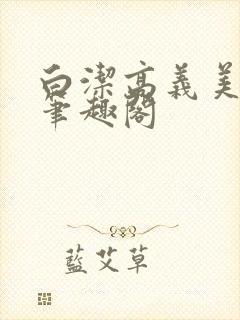 白潔高義美
筆趣閣
藍艾草